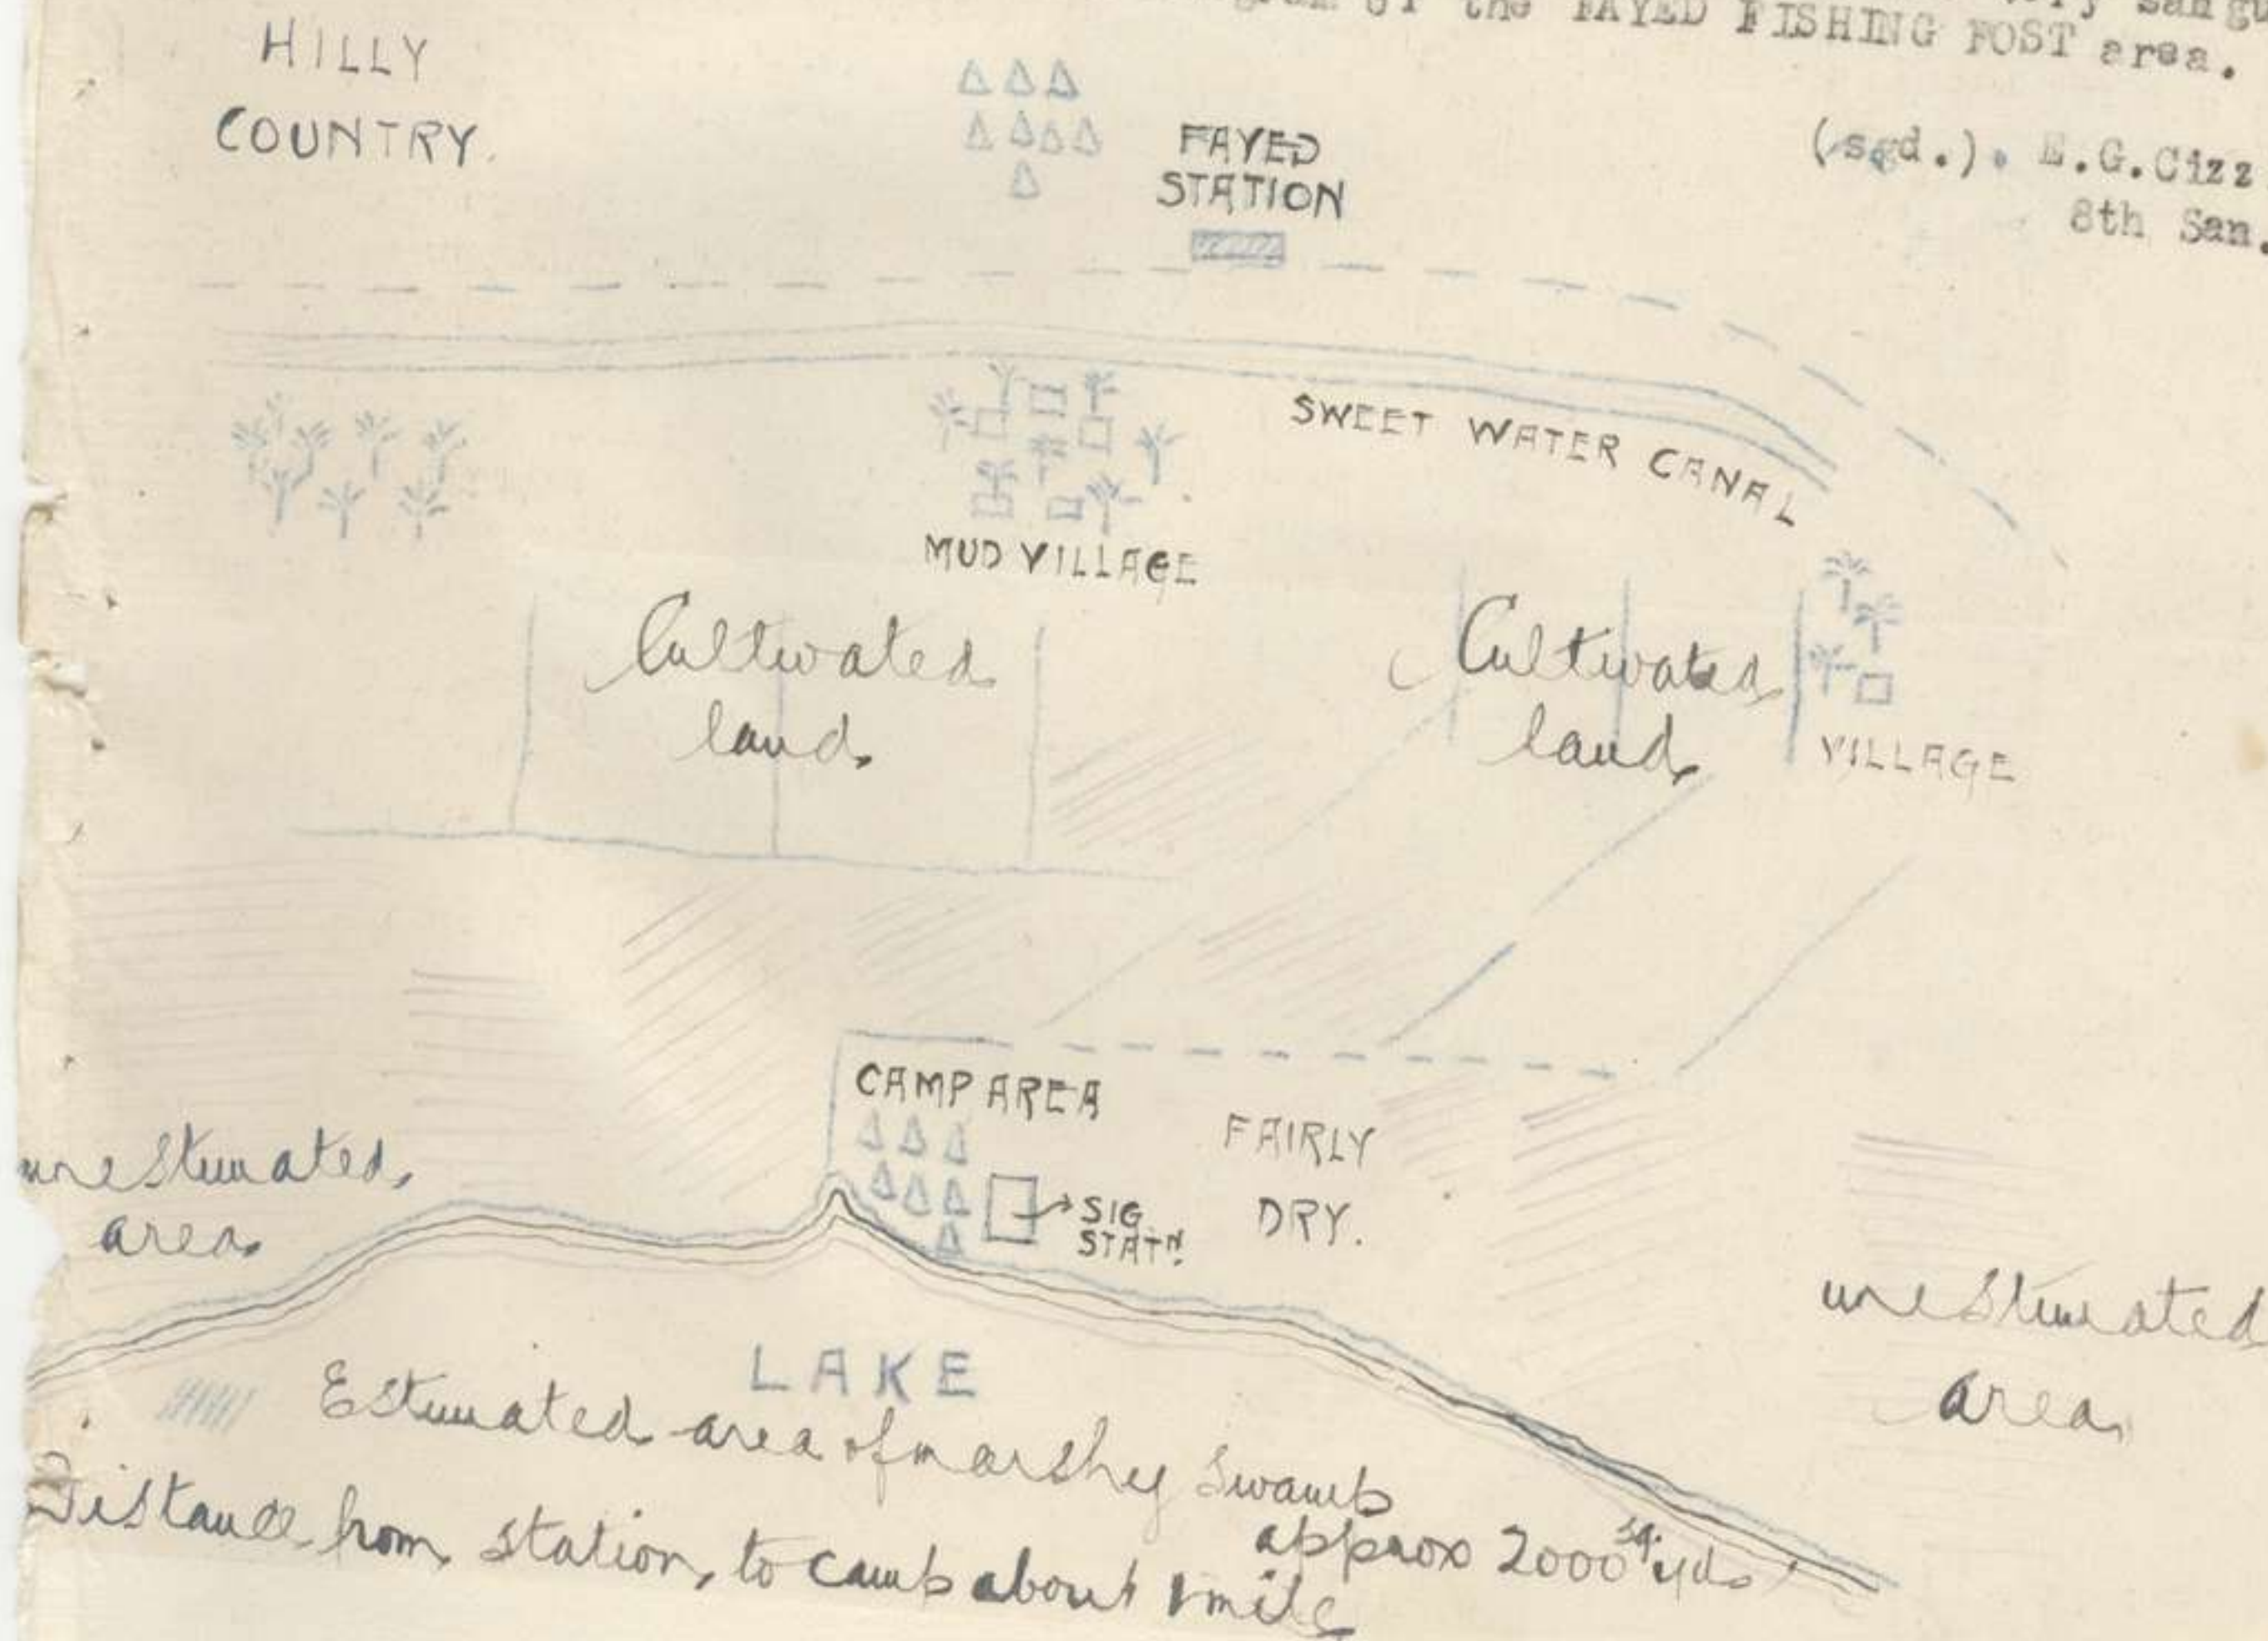 the FAYED FISHING POST area.
(sgd.). E.G.Cizz
8th San.
HILLY
COUNTRY.
FAYED
STATION
SWEET WATER CANAL
MUD VILLAGE
Cultivated
land
Cultivated
land
VILLAGE
CAMP AREA
FAIRLY
DRY.
SIG
STATN.
unestimated
area
unestimated
area
LAKE
Estimated area of marshy swamp
approx 2000 sq. yds
Distance from station, to camp about 1 mile